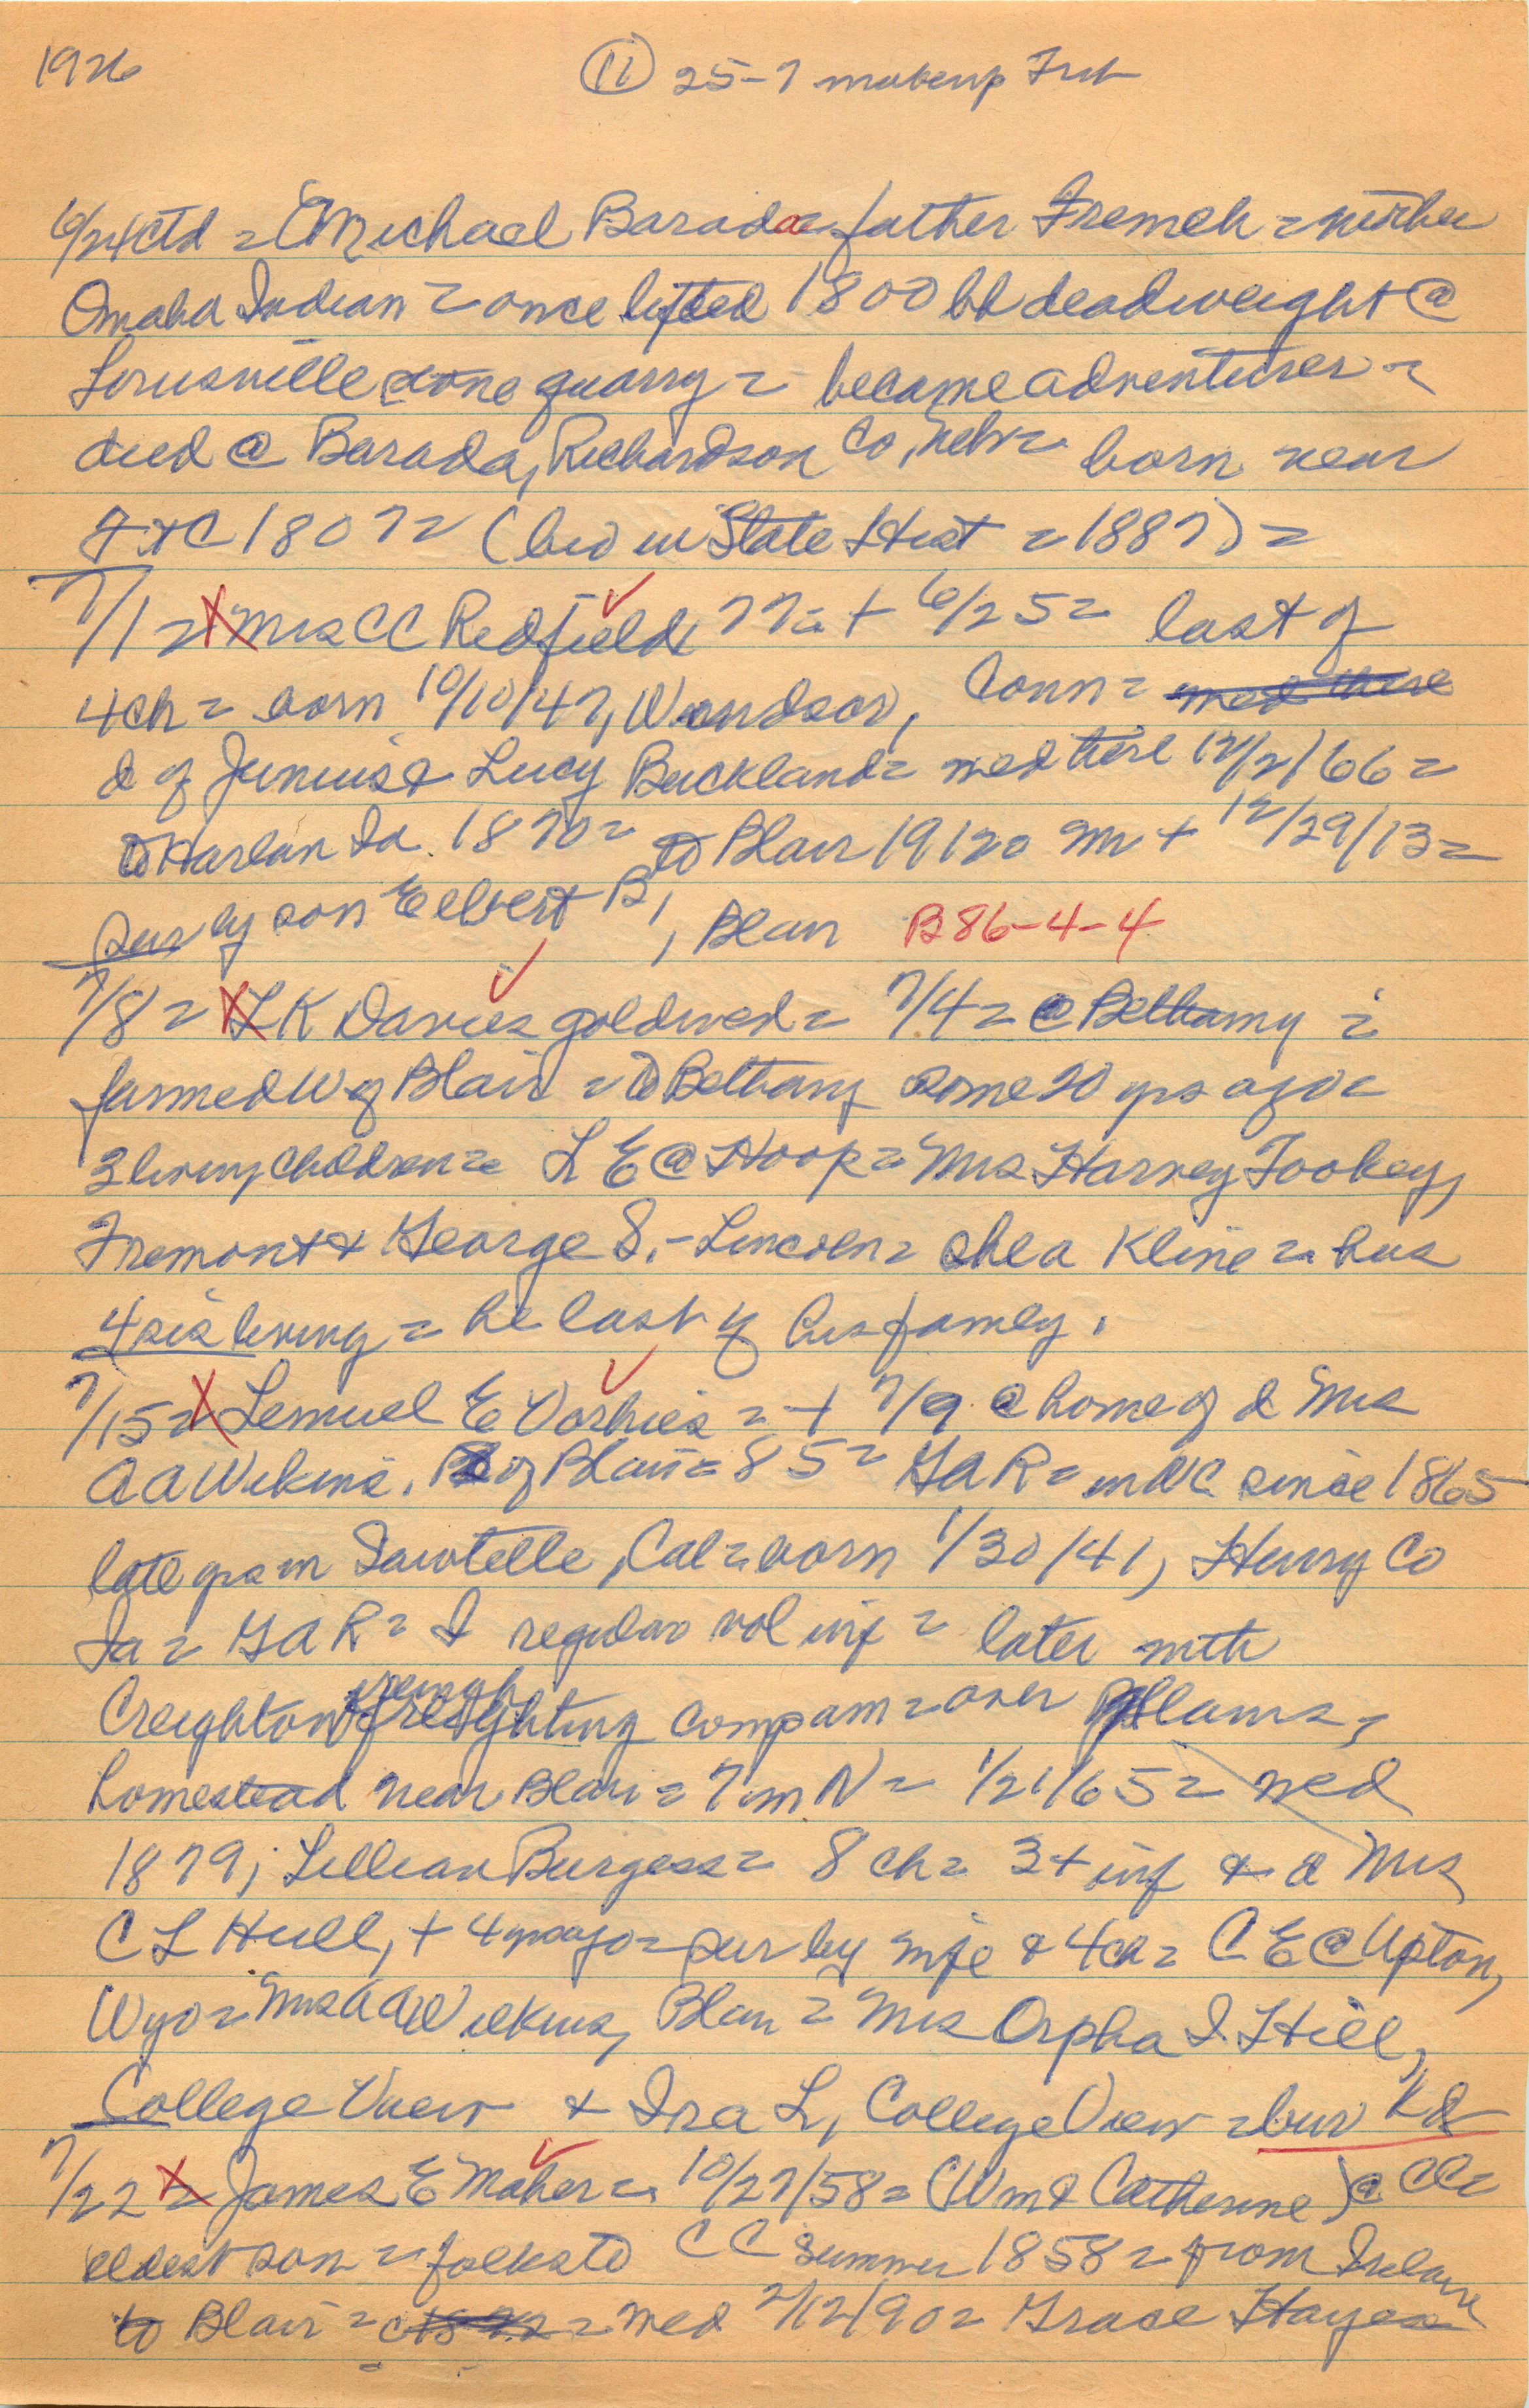 1926 (11) 25-7 makeup Trib
6/24 ctd = Michael Barada = father French = mother
Omaha Indian = once lifted 1800 lb deadweight @
Louisville stone quarry = became adventurer =
died @ Barada, Richardson Co, Nebr = born near
Ft C 1807 = (bio in State Hist = 1887) =
7/1 = X Mrs CC Redfield 77 = + 6/25 = last of
4 ch = born 10/10/47, Windsor, Conn = med there
d of Junius & Lucy Buckland = med there 12/2/66 =
to Harlan Ia. 1870 = to Blair 1912 = Mr + 12/29/13 =
sur by son Eelbert B, Blair B86-4-4
7/8 = X LK Davies goldwed = 7/4 = @ Bethany =
farmed W of Blair = to Bethany some 20 yrs ago =
3 living children = L E @ Hoop = Mrs Harvey Tookey,
Fremont & George S. - Lincoln = she a Kline = has
4 sis living = he last of his family.
7/15 = X Lemuel E Vorhies = + 7/9 @ home of d Mrs
AA Wikins. of Blair = 85 = GAR = in WC since 1865
late yrs in Sawtelle, Cal = born 1/30/41, Henry Co
Ia = GAR = I regular vol inf = later with
Creighton freighting compam = over plains =
homestead near Blair = 7 m N = 1/21/65 = med
1879; Lillian Burgess = 8 ch = 3 + inf & d Mrs
C L Hull, + 4 yrs ago = sur by wife & 4 ch = C E @ Upton,
Wyo = Mrs AA Wilkins, Blair = Mrs Orpha I. Hill,
College View & Ira L, College View = bur K &
7/22 X = James E Maher = 10/27/58 = (Wm & Catherine) @ CC =
eldest son = folks to CC summer 1858 = from Ireland
to Blair = = med 2/12/90 = Grace Hayes